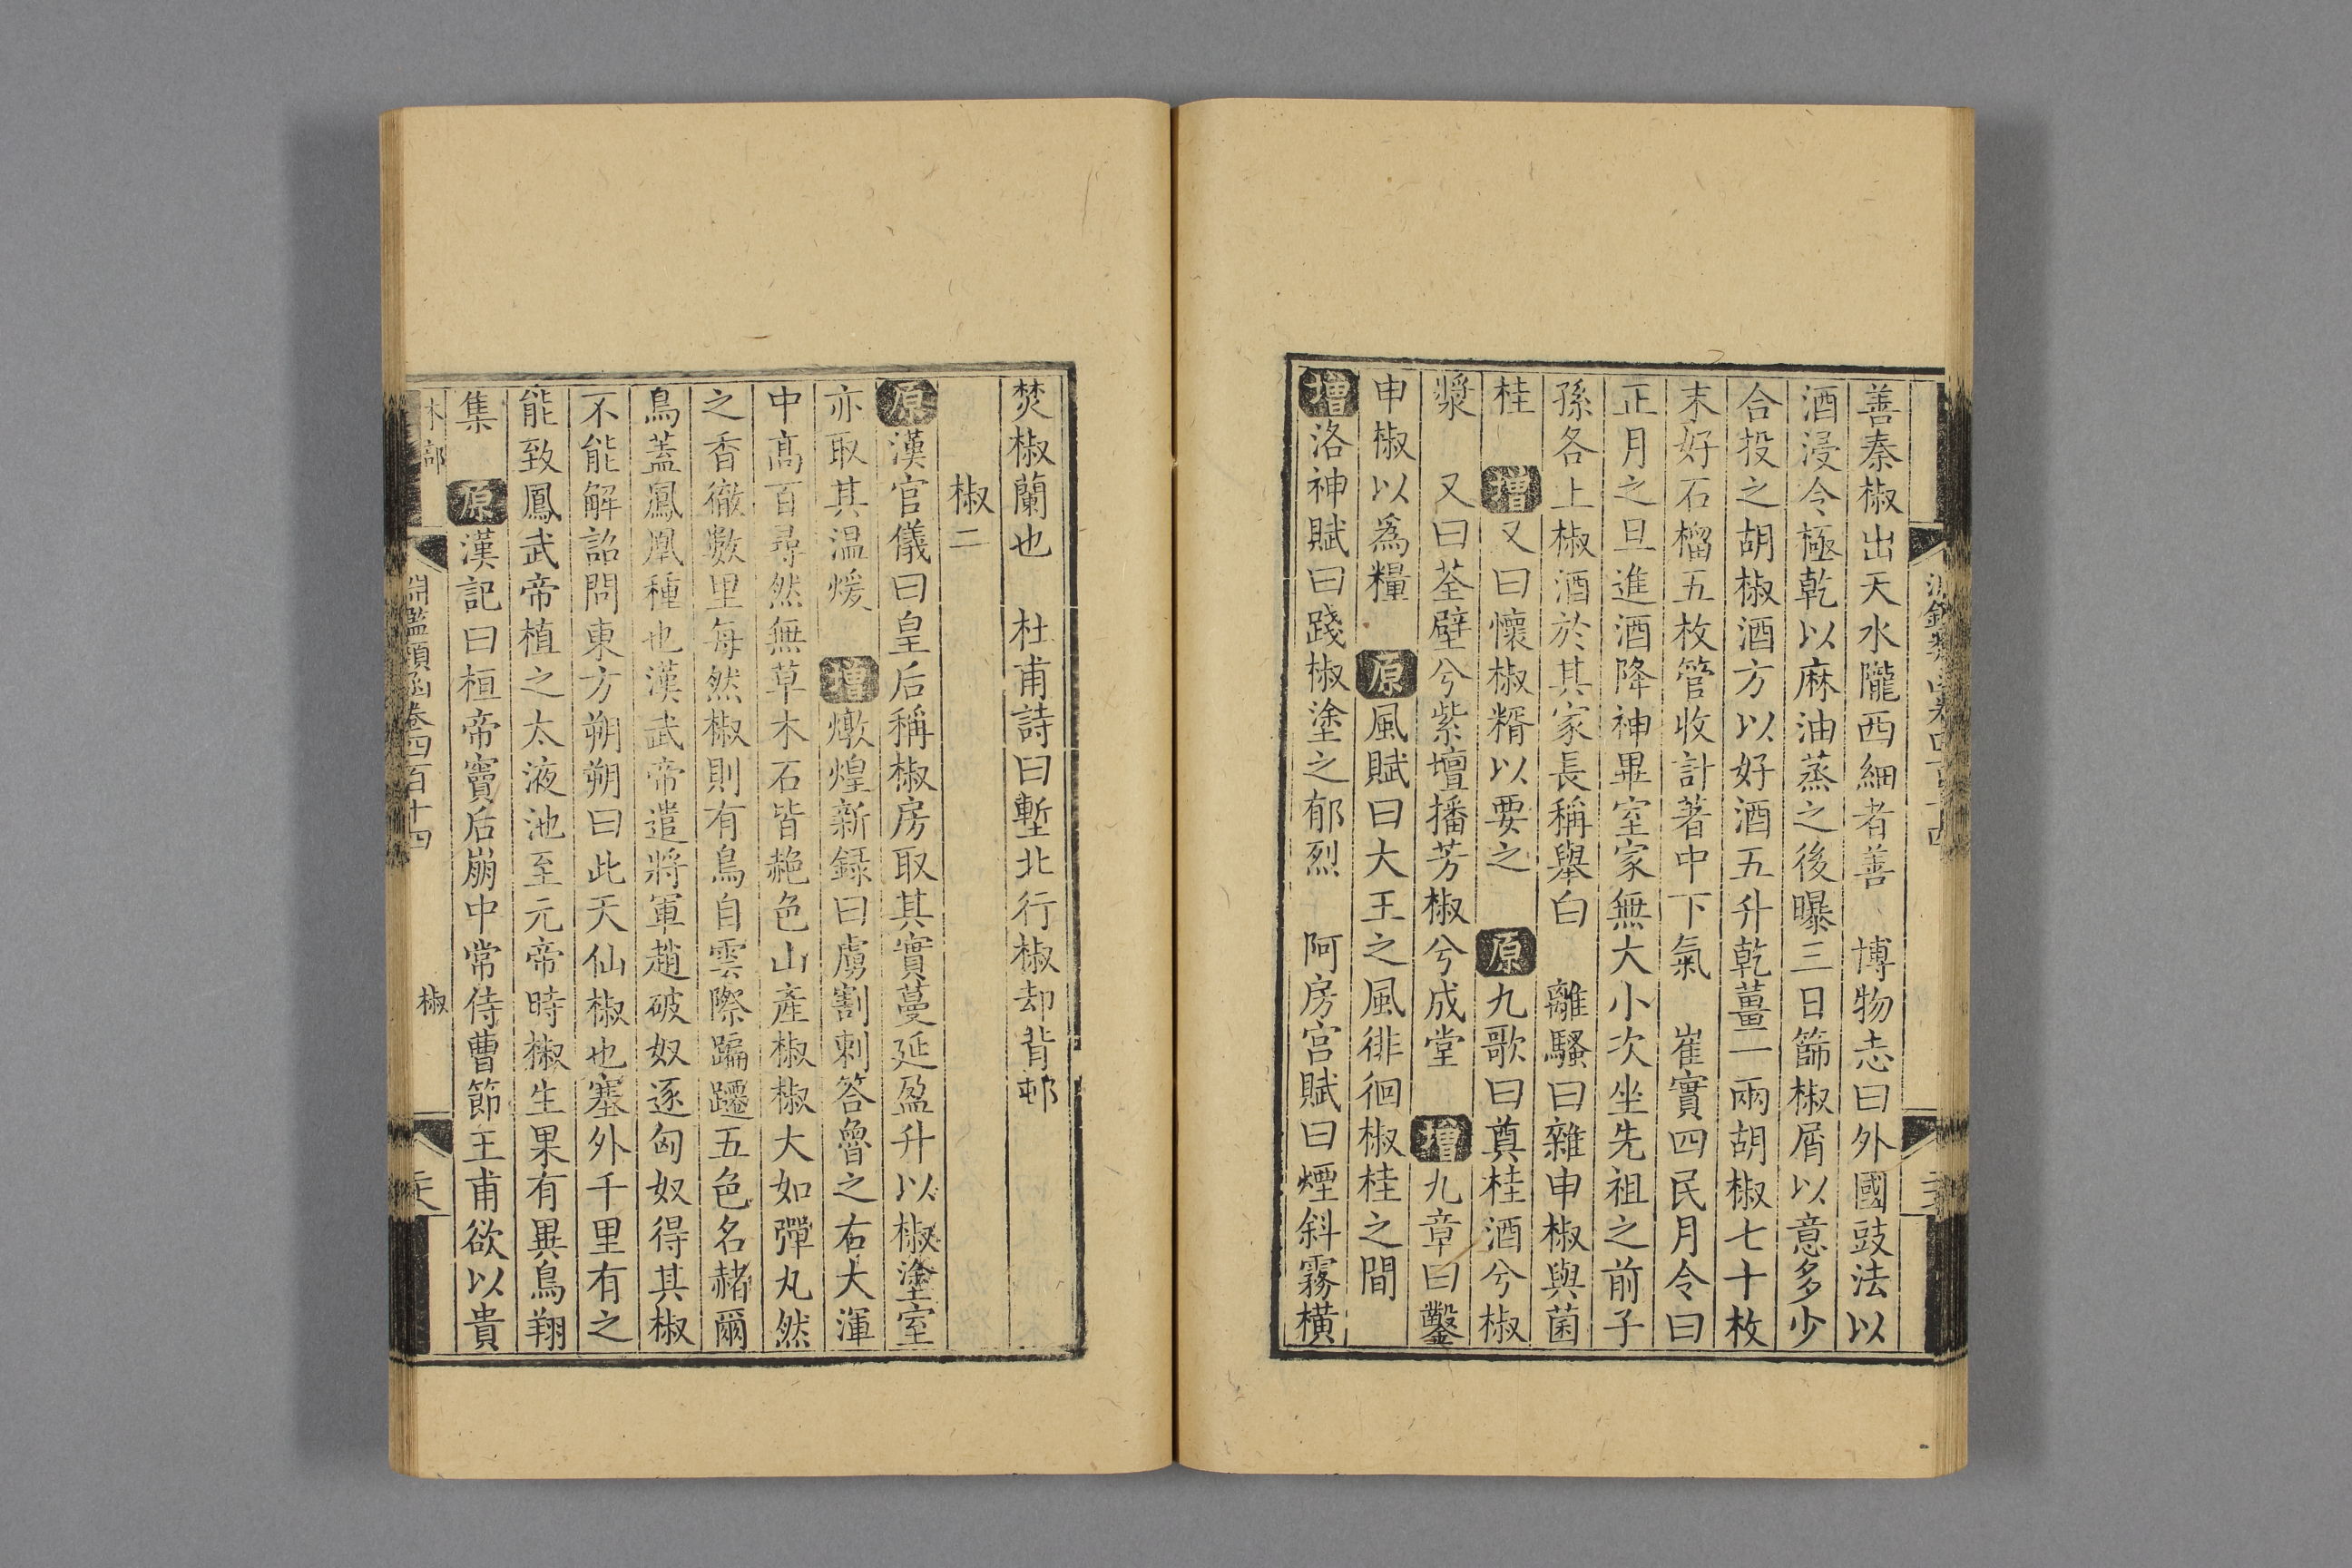 善秦椒出天水隴西細者善　博物志曰外國豉法以
酒浸令極乾以麻油蒸之後曝三日篩椒屑以意多少
合投之胡椒酒方以好酒五升乾薑一兩胡椒七十枚
末好石榴五枚管收計著中下氣　崔實四民月令曰
正月之旦進酒降神畢室家無大小次坐先祖之前子
孫各上椒酒於其家長稱舉白　離騷曰雜申椒與菌
桂　增　又曰懷椒糈以要之　原　九歌曰奠桂酒兮椒
漿　又曰荃壁兮紫壇播芳椒兮成堂　增　九章曰鑿
申椒以爲糧　原　風賦曰大王之風徘徊椒桂之間
增　洛神賦曰踐椒塗之郁烈　阿房宫賦曰煙斜霧橫
焚椒蘭也　杜甫詩曰塹北行椒却背邨
椒二
原　漢官儀曰皇后稱椒房取其實蔓延盈升以椒塗室
亦取其温煖　增　燉煌新録曰虜割刺答魯之右大渾
中髙百尋然無草木石皆赩色山產椒椒大如彈丸然
之香徹數里每然椒則有鳥自雲際蹁躚五色名赭爾
鳥蓋鳳凰種也漢武帝遣將軍趙破奴逐匈奴得其椒
不能解詔問東方朔朔曰此天仙椒也塞外千里有之
能致鳳武帝植之太液池至元帝時椒生果有異鳥翔
集　原　漢記曰桓帝竇后崩中常侍曹節王甫欲以貴
木部　淵鑑類函卷四百十四　椒